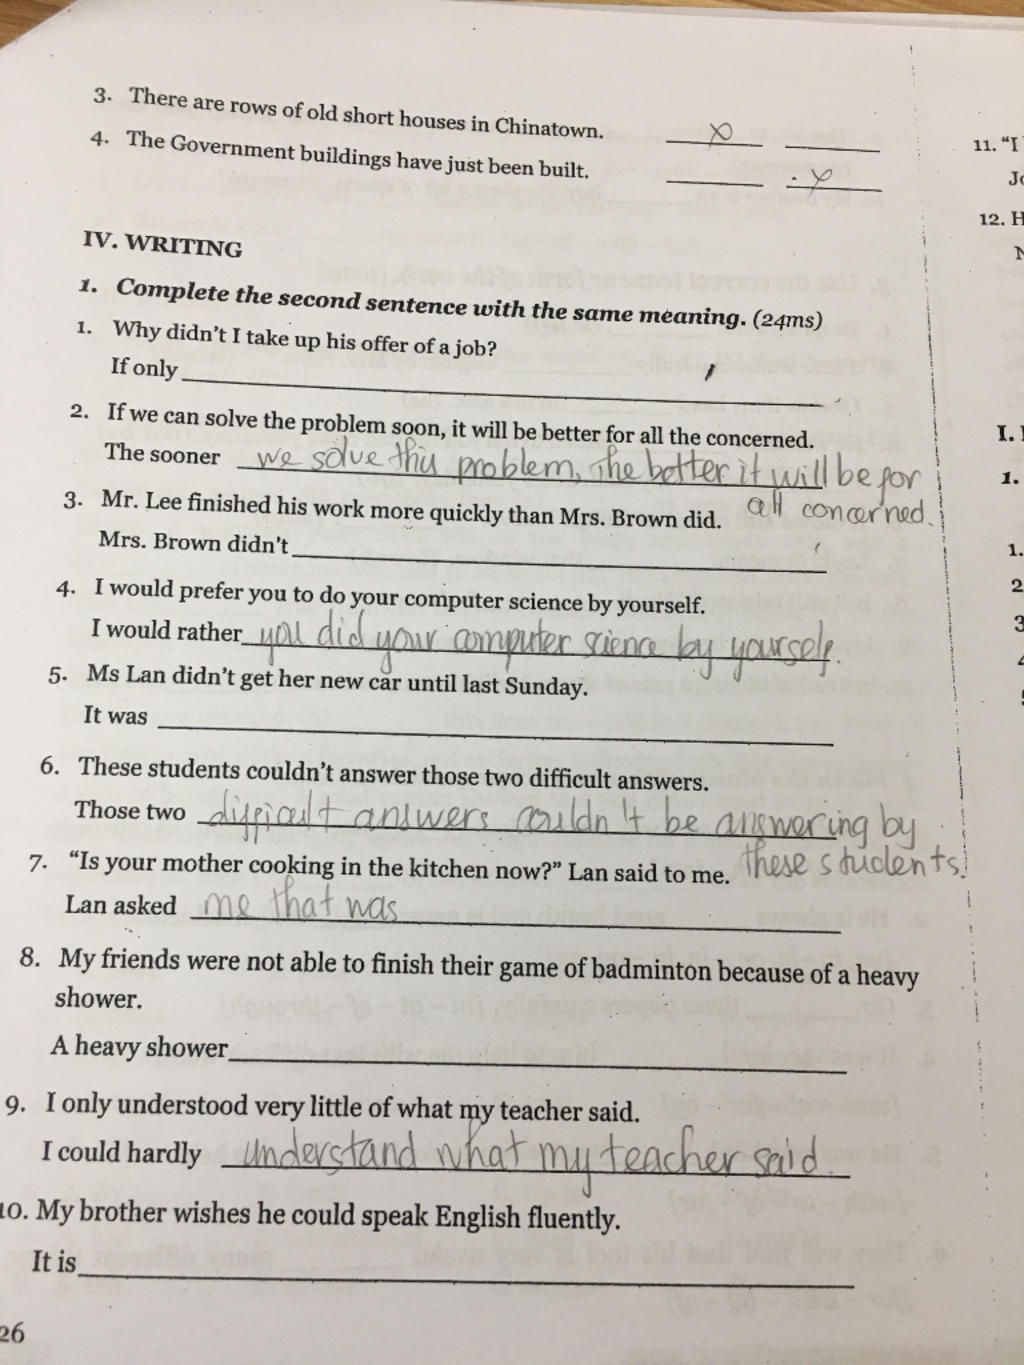 3. There are rows of old short houses in Chinatown. x
4. The Government buildings have just been built. x
IV. WRITING
1. Complete the second sentence with the same meaning. (24ms)
1. Why didn't I take up his offer of a job?
If only
2. If we can solve the problem soon, it will be better for all the concerned.
The sooner we solve this problem, The better it will be for
all concerned.
3. Mr. Lee finished his work more quickly than Mrs. Brown did.
Mrs. Brown didn't
4. I would prefer you to do your computer science by yourself.
I would rather you did your computer science by yourself.
5. Ms Lan didn't get her new car until last Sunday.
It was
6. These students couldn't answer those two difficult answers.
Those two difficult answers couldn't be answering by
these students.
7. "Is your mother cooking in the kitchen now?" Lan said to me.
Lan asked me that was
8. My friends were not able to finish their game of badminton because of a heavy
shower.
A heavy shower
9. I only understood very little of what my teacher said.
I could hardly understand what my teacher said.
10. My brother wishes he could speak English fluently.
It is
26
11. "I
12. H
I.
1.
1.
2
3